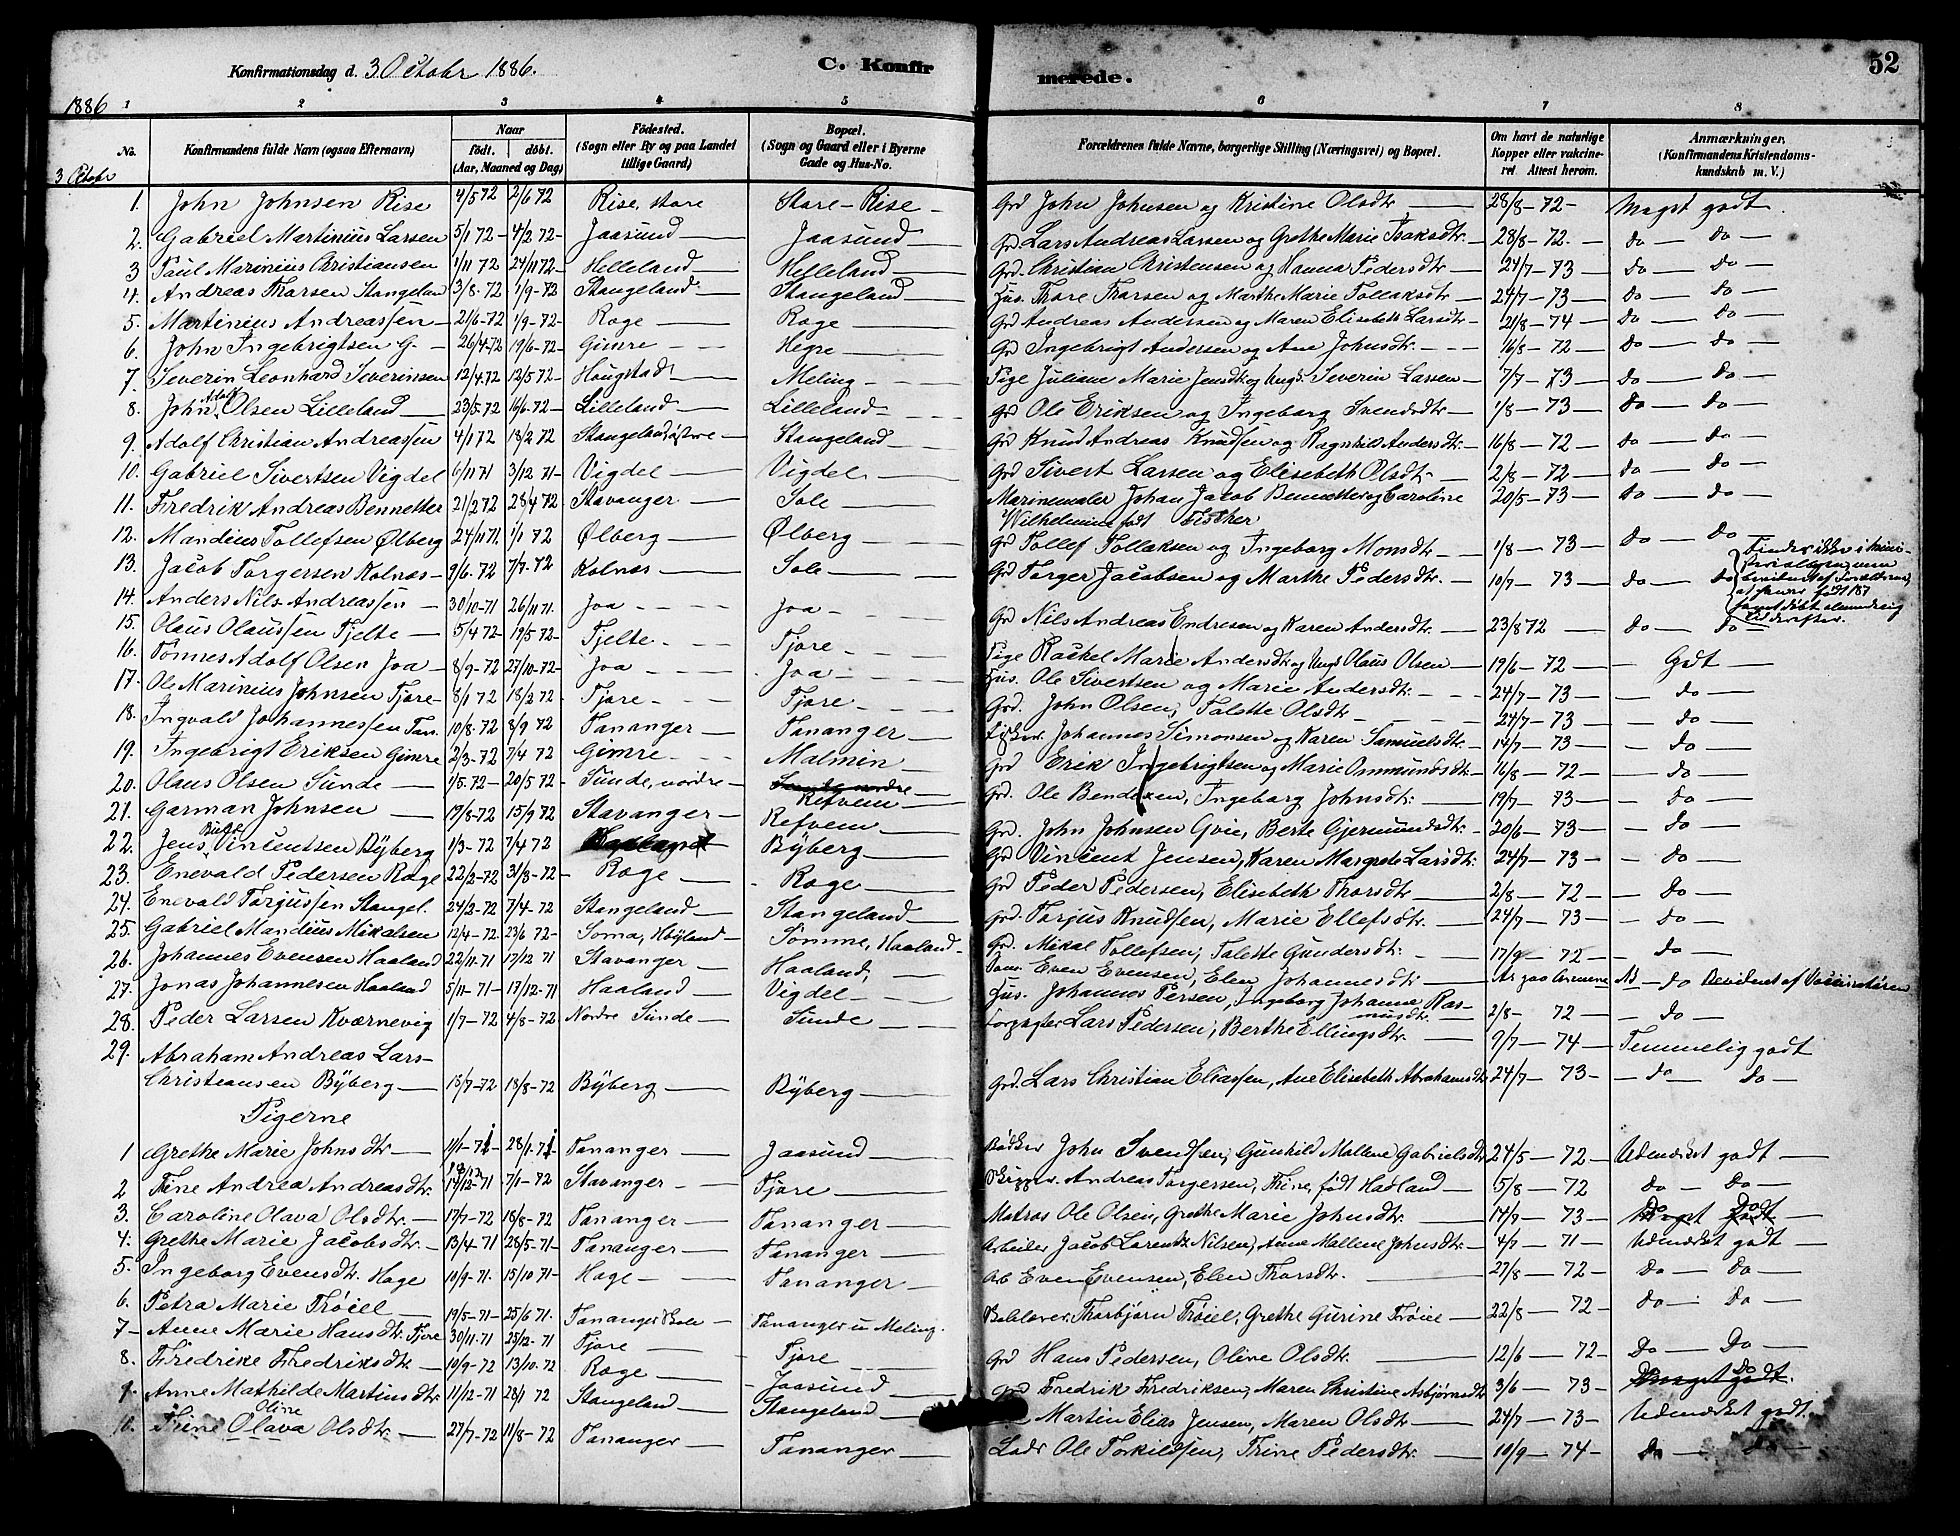 Konfirmationsdag d. 3 Octobr 1886. C. Konfirmerede. 52
1886 1 2 3 4 5 6 7 8
No. Konfirmandens fulde Navn (ogsaa Efternavn) Naar födt. döbt. (Aar, Maaned og Dag) Födested. (Sogn eller By og paa Landet tillige Gaard) Bopæl. (Sogn og Gaard eller i Byerne Gade og Hus-No. Forældrenes fulde Navne, borgerlige Stilling (Næringsvei) og Bopæl. Om havt de naturlige Kopper eller vakcineret Attest herom. Anmærkninger. (Konfirmandens Kristendomskundskab m. V.)
3 Octobr
1. John Johnsen Rise 4/5 72 2/6 72 Rise, store Store-Rise Grd John Johnsen og Kristine Olsdtr 28/8-72 Meget godt.
2. Gabriel Martinius Larsen 5/1 72 4/2 72 Jaasund Jaasund Grd. Lars Andreas Larsen og Grethe Marie Isaksdtr. 28/8-72. do do
3 Paul Marinius Christiansen 1/11 72 24/11 72 Helleland Helleland Grd. Christian Christensen og Hanna Pedersdtr 24/7-73 do do
4. Andreas Tharsen Stangelan 3/8-72 1/9-72 Stangeland Stangeland Hus. Thore Tharsen og Marthe Marie Tollaksdtr 24/7-73 do do
5. Martinius Andreassen 21/6-72 1/9-72 Roge Roge Grd Andreas Andersen og Maren Elisebeth Larsdtr 21/8-74 do do
6. John Ingebrigtsen G. 26/4-72 19/6-72 Gimre Hegre Grd Ingebrigt Andersen og Ane Johnsdtr. 16/8-72 do do
7. Severin Leonhard Severinsen 12/4 72 12/5 72 Hougstad Meling Pige Juliane Marie Jensdtr og Ungk. Severin Larsen 7/7-73 do do
8. John Adolf Olsen Lilleland 23/5 72 16/6-72 Lilleland Lilleland Grd Ole Eriksen og Ingeborg Svendsdtr 1/8-73 do do
9. Adolf Christian Andreassen 4/1 72 18/2 72 Stangeland, østre Stangeland Grd Knud Andreas Knudsen og Ragnhild Andersdtr. 16/8-72 do do
10. Gabriel Sivertsen Vigdel 6/11 71 3/12 71 Vigdel Vigdel Grd Sivert Larsen og Elisebeth Olsdtr 2/8-72 do do
11. Fredrik Andreas Bennetter 21/2 72 28/4 72 Stavanger Sole Marinemaler Johan Jacob Bennetter og Caroline 20/5-73 do do
Wilhelmine født Fischer
12. Mandius Tollefsen Ølberg 24/11 71. 1/1 72 Ølberg Ølberg Grd Tollef Tollaksen og Ingeborg Monsdtr 1/8-73 do do
13. Jacob Torgersen Kolnæs 9/6-72 7/7-72 Kolnæs Sole Grd Torger Jacobsen og Marthe Pedersdtr. 10/7-73 do do
14. Anders Nils Andreassen 30/10-71 26/11 71. Joa Joa Grd Nils Andreas Endresen og Karen Andersdtr. 23/8 72 do do
15. Olaus Olaussen Tjelte 5/4 72 19/5 72 Tjelte Tjore Pige Rackel Marie Andersdtr og Ungk Olaus Olsen 19/6-72 Godt
16. Tønnes Adolf Olsen Joa 8/9-72 27/10-72 Joa Joa Hus. Ole Sivertsen og Marie Andersdtr. 24/7-73 do
17. Ole Marinius Johnsen Tjore 8/1 72 18/2 72 Tjore Tjore Grd. John Olsen, Talette Olsdtr 24/7-73 do
18. Ingvald Johannessen Tan. 10/8-72 8/9 72 Tananger Tananger Fisker. Johannes Simonsen og Karen Samuelsdtr. 14/7-73 do
19. Ingebrigt Eriksen Gimre 2/3-72 7/4 72 Gimre Malmin Grd Erik Ingebrigtsen og Marie Ommundsdtr 16/8-72 do
20. Olaus Olsen Sunde 1/5-72 20/5 72 Sunde, nordre Sunde nordre Refvem Grd. Ole Bendixen, Ingeborg Johnsdtr: 19/7-73 do
21. Garman Johnsen 19/8-72 15/9 72 Stavanger Refvem Grd. John Johnsen Gvie, Berte Gjermundsdtr. 20/6-73 do
22. Jens Vincentsen Byberg 1/3-72 7/4 72 Byberg Grd Vincent Jensen, Karen Margrete Larsdtr. 24/7-73 do
23. Enevald Pedersen Roge 22/2-72 31/8-72 Roge Roge Grd Peder Pedersen, Elisebeth Thorsdtr 2/8-72 do
24. Enevald Torjussen Stangel. 24/2-72 7/4-72 Stangeland Stangeland Grd. Torjus Knudsen, Marie Ellefsdtr. 24/7-73 do
25. Gabriel Mandius Mikalsen 12/4-72. 23/6 72 Soma, Høyland Sømme, Haaland Grd. Mikal Tollefsen, Talette Gundersdtr. 17/9-72 do
26. Johannes Evensen Haaland 22/11-71 17/12 71 Stavanger Haaland, Even Evensen, Elen Johannesdtr Ar paa Armene do Bevidnet af Vaccinatøren
27. Jonas Johannesen Haaland 5/11-71 17/12-71 Haaland Vigdel Hus. Johannes Persen, Ingeborg Johanne Rasmusdtr. 2/8-72 do
28. Peder Larsen Kværnevig 1/7-72 4/8-72 Nordre Sunde Sunde Forpagter Lars Pedersen, Berthe Ellingsdtr. 9/7-74 Temmelig godt
29. Abraham Andreas Lars-
Christiansen Byberg 15/7-72 18/8-72 Byberg Byberg Grd. Lars Christian Eliassen, Ane Elisebeth Abrahamsdtr 24/7-73 do do
Pigerne
1 Grethe Marie Johnsdtr 11/1-71 28/1-71 Tananger Jaasund Bødker John Svendsen, Gunhild Mallene Gabrielsdtr 24/5-72 Udmærket godt
2 Tine Andrea Andreasdtr. 14/12-71 7/1-72 Stavanger Tjore Skipper. Andreas Torgersen, Thine, født Hadland 5/8-72 Do Do
3. Caroline Olava Olsdtr. 17/7-72 18/8-72 Tananger Tananger Matros Ole Olsen, Grethe Marie Johnsdtr. 14/7-73 Meget Godt
4. Grethe Marie Jacobsdtr. 13/4 71 28/5-71 Tananger Tananger Arbeider Jacob Larentz Nilsen, Anne Mallene Johnsdtr. 4/7-71 Udmærket godt
5. Ingeborg Evensdtr. Hage 10/9-71. 15/10 71 Hage Tananger Arb Even Evensen, Elen Thorsdtr. 27/8-72 Do Do
6. Petra Marie Trøiel 19/5-71 25/6 71. Tananger Sole Tananger u Meling. Thorbjørn Trøiel, Grethe Gurine Trøiel 22/8-72 Do Do
7 Anne Marie Hansdtr. Tjore 30/11 71 25/12-71 Tjore Tjore Grd Hans Pedersen, Oline Olsdtr. 12/6-72 Do Do
8. Fredrike Fredriksdtr 10/9-72 13/10-72 Roge Jaasund Grd Fredrik Fredriksen, Maren Christine Asbjørnsdtr 3/6-73 Meget Godt.
9. Anne Mathilde Martinsdtr. 11/12-71 28/1 72 Stangeland Stangeland Martin Elias Jensen, Maren Olsdtr 24/7-73 Udmærket godt.
10. Thine Oline Olava Olsdtr. 27/7-72 11/8-72 Tananger Tananger Lods Ole Torkildsen, Thine Pedersdtr. 10/9-74 Do Do